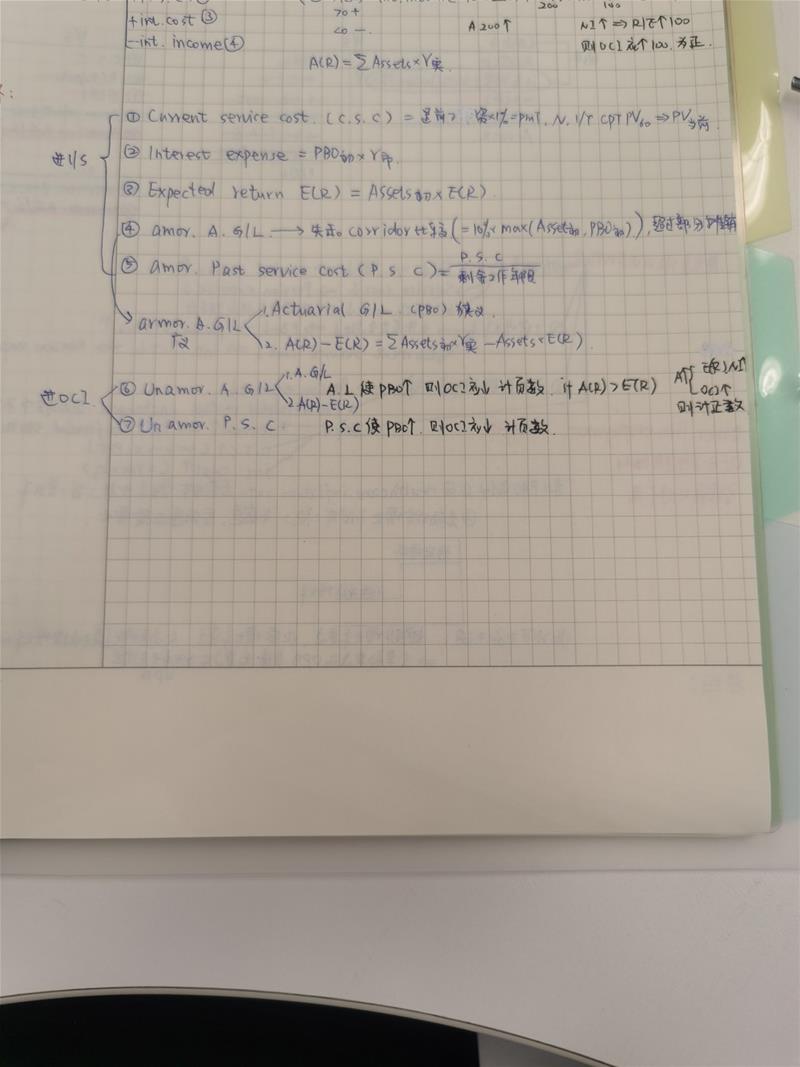 200 100
+int. cost ③ 70+ A 200↑ NI↑ ⇒ R/E↑100
-int. income④ 20- 则OCI应↑100, 为正.
A(R)=∑Assets×r实.
① Current service cost. (C.S.C) = ×1%=PMT. N. I/Y CPT PV60 ⇒ PV当前.
进I/S
② Interest expense = PBO初×r
③ Expected return E(R) = Assets初×E(R)
④ amor. A.G/L → corridor (=10%×max(Asset初, PBO初)), 超过部分摊销
⑤ amor. Past service cost (P.S.C)= P.S.C / 剩余工作年限
armor. A.G/L 1.Actuarial G/L (PBO)
2. A(R)-E(R)=∑Assets初×r实-Assets×E(R).
进OCI ⑥ Unamor. A.G/L 1.A.G/L A.L使PBO↑ 则OCI应↓ 计负数. if A(R)>E(R) A↑ E(R)NI↑
2.A(R)-E(R) OCI↑
则计正数
⑦ Unamor. P.S.C. P.S.C使PBO↑. 则OCI应↓ 计负数.